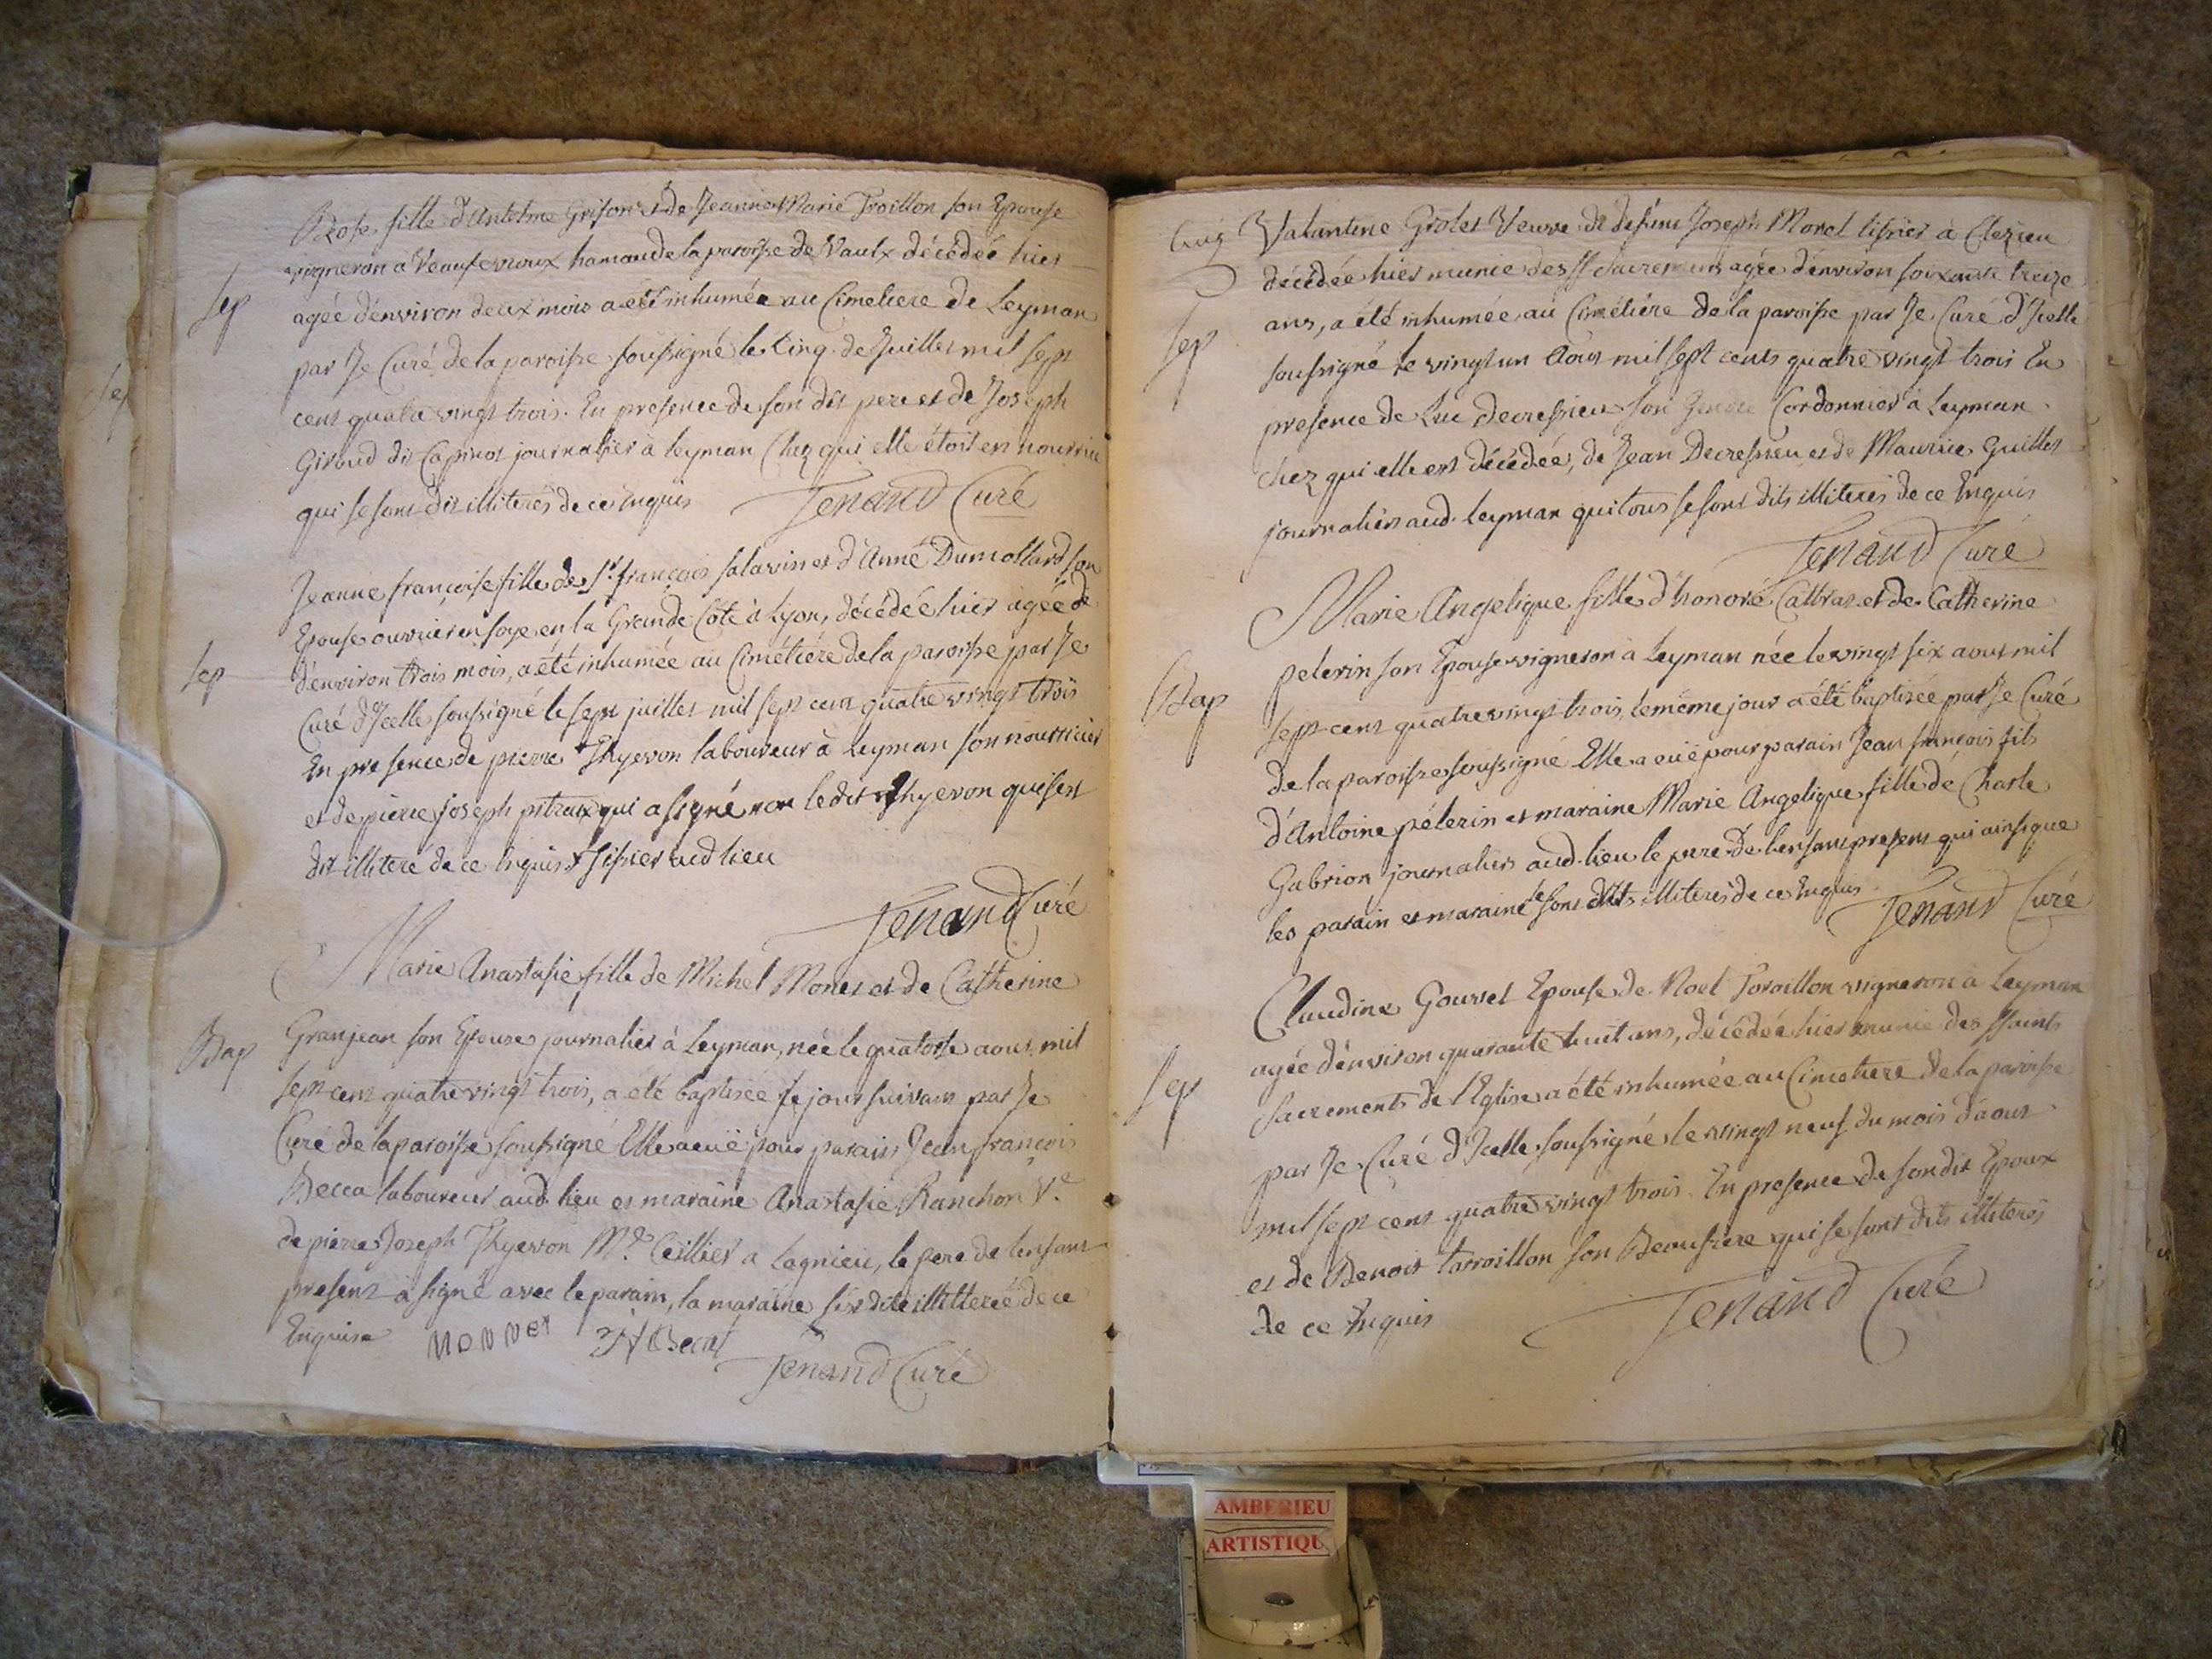 Rose fille d'Antelme Grison et de Jeanne Marie Troillon son Epouse
vigneron a Veaufevroux hamau de la paroisse de Vaulx décédée hier
Sep
agée d'environ deux mois a été inhumée au Cimetiere de Leyman
par Je Curé de la paroisse soussigné le Cinq de Juillet mil sept
cent quatre vingt trois. En presence de son dit pere et de Joseph
Giroud dit Capinot journalier à Leyman Chez qui elle étoit en nourrice
qui se sont dit illiterés de ce Enquis Tenand Curé
Jeanne françoise fille de Sr. françois Salavin et d'Anne Dumollard son
Epouse ouvrier en soye en la Grande Cote à Lyon, décédée hier agée de
Sep
d'environ trois mois, a été inhumée au Cimétiére de la paroisse par Je
Curé d'Icelle soussigné le sept juillet mil sept cent quatre vingt trois
En presence de pierre Thyevon laboureur à Leyman son nourricier
et de pierre joseph pitraux qui a signé non ledit Thyevon qui s'est
dit illiteré de ce Enquis + tissier aud lieu
Tenand Curé
Marie Anastasie fille de Michel Monet et de Catherine
Bap
Granjean son Epouse journalier à Leyman, née le quatorse aout mil
sept cent quatre vingt trois, a été baptisée le jour suivant par Je
Curé de la paroisse soussigné Elle a euë pour parain Jean françois
Becca laboureur aud. lieu et maraine Anastasie Ranchon Ve.
de pierre Joseph Thyevon Md. Ceillier a Lagnieu, le pere de lenfant
present a signé avec le parain, la maraine s'est dite illitterée de ce
Enquise MONNET Becat
Tenand Curé
Valantine Grolet Veuve de defunt Joseph Morel tissier à Clezieu
décédée hier munie des SS Sacremens agée d'environ soixante treize
Sep
ans, a été inhumée au Cimétiére de la paroisse par Je Curé d'Icelle
soussigné le vingt un Aout mil sept cents quatre vingt trois En
presence de Luc Decressieu son Gendre Cordonnier à Leyman
chez qui elle est décédée, de Jean Decressieu et de Maurice Guillet
journaliers aud. Leyman qui tous se sont dits illiterés de ce Enquis
Tenand Curé
Marie Angelique fille d'honoré Cattraz et de Catherine
Bap
pelerin son Epouse vigneron à Leyman née le vingt six aout mil
sept cent quatre vingt trois, le même jour a été baptisée par Je Curé
de la paroisse soussigné Elle a euë pour parain Jean françois fils
d'Antoine pélerin et maraine Marie Angelique fille de Charle
Gabrion journalier aud. lieu le pere de l'enfant present qui ainsi que
les parain et maraine se sont dits illiterés de ce Enquis Tenand Curé
Claudine Gourset Epouse de Noel Toroillon vigneron à Leyman
agée d'environ quarante huit ans, décédée hier munie des SSaints
Sep
Sacrements de l'Eglise a été inhumée au Cimetiere de la paroisse
par Je Curé d'Icelle soussigné le vingt neuf du mois d'aout
mil sept cent quatre vingt trois En presence de son dit Epoux
et de Benoit Torroillon son Beaufrere qui se sont dits illiterés
de ce Enquis Tenand Curé
AMBERIEU
ARTISTIQU